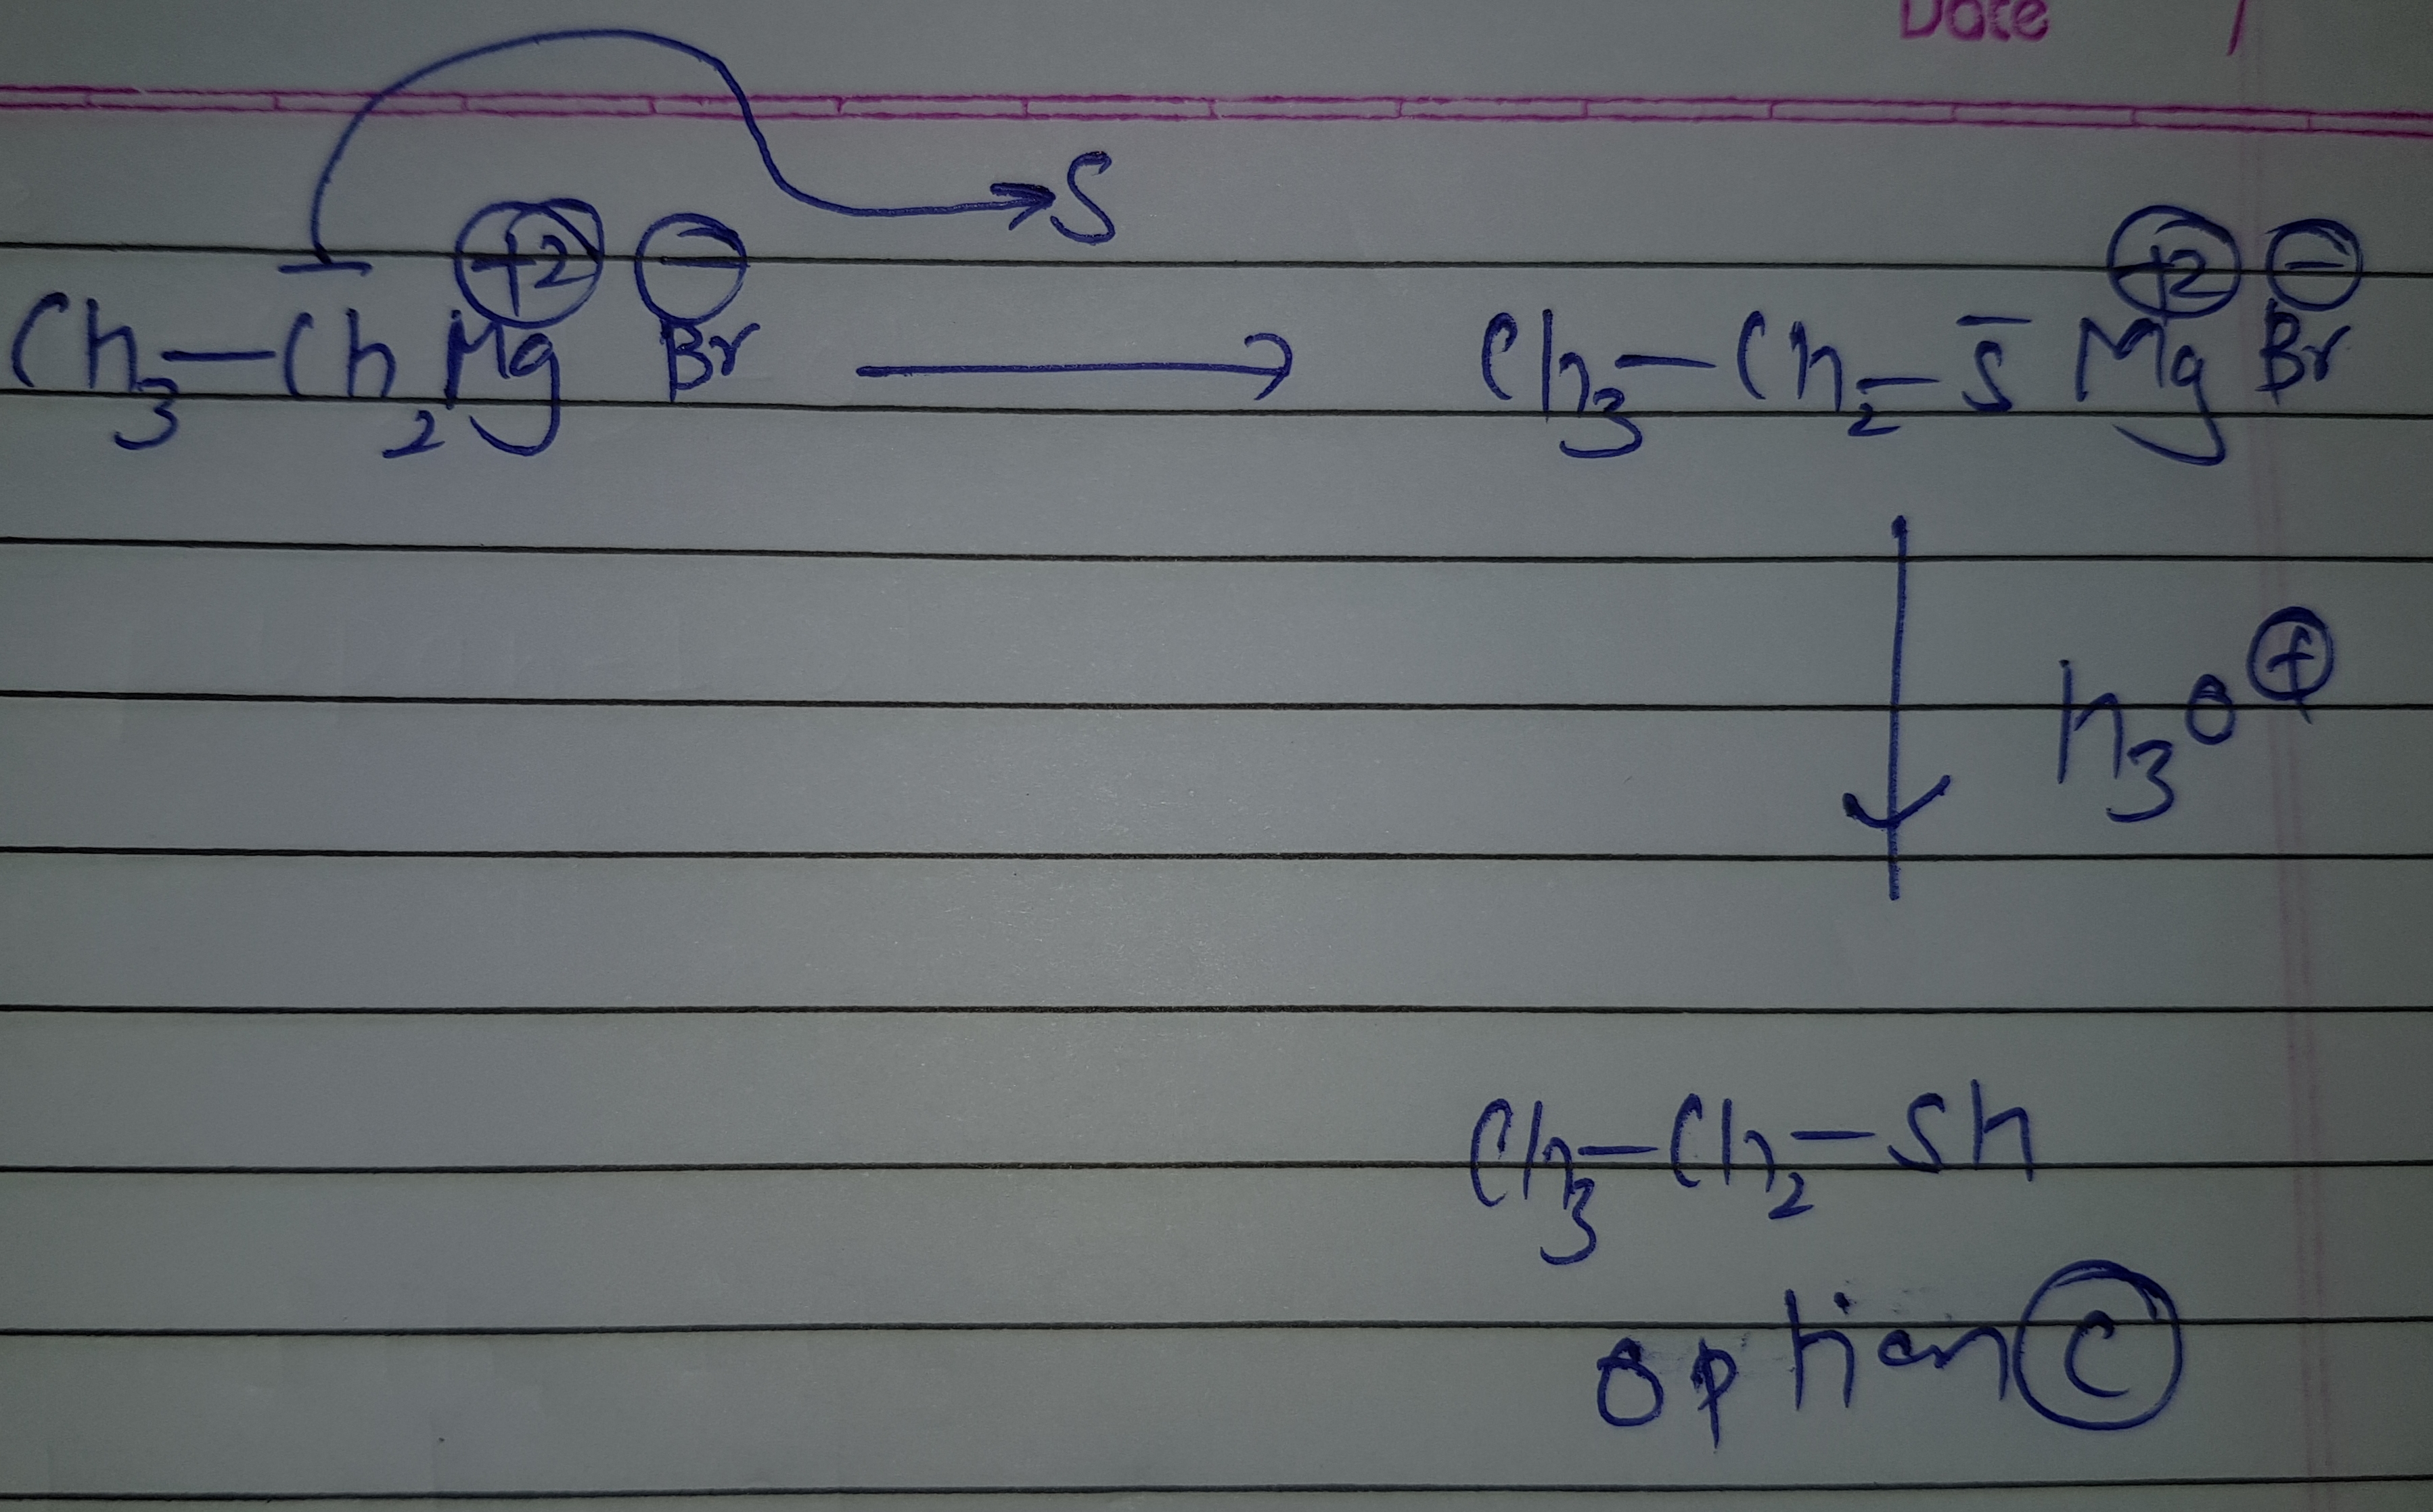 Date /
S
- +2 -
Ch3-Ch2 Mg Br ⟶ Ch3-Ch2-S̄ Mg+2 Br-
h3o+
Ch3-Ch2-Sh
option C